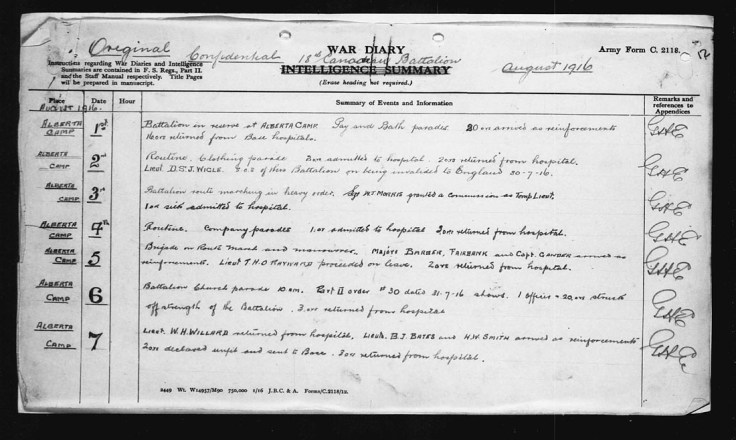 Original Confidential
WAR DIARY
Army Form C. 2118.
18th Canadian Battalion
Instructions regarding War Diaries and Intelligence
Summaries are contained in F. S. Regs., Part II.
and the Staff Manual respectively. Title Pages
will be prepared in manuscript.
INTELLIGENCE SUMMARY
August 1916
(Erase heading not required.)
Place Date Hour Summary of Events and Information Remarks and references to Appendices
August 1916.
ALBERTA CAMP 1st Battalion in reserve at ALBERTA CAMP. Pay and Bath parades 20 ors arrived as reinforcements
returned from Base hospital.
ALBERTA CAMP 2nd Routine. Clothing parade 2ors admitted to hospital. 2ors returned from hospital.
Lieut. D.S.J. WIGLE. S.O.S of this Battalion on being invalided to England 20-7-16.
ALBERTA CAMP 3rd Battalion route marching in heavy order. Sgt MT MORRIS granted a commission as Temp Lieut.
1or sick admitted to hospital.
ALBERTA CAMP 4th Routine. Company parades 1.or admitted to hospital 2ors returned from hospital.
ALBERTA CAMP 5 Brigade on Route March and manouver. Majors BARBER, FAIRBANK and Capt. GANDER arrived as
reinforcements. Lieut T.H.O MAYNARD proceeded on leave. 2ors returned from hospital.
ALBERTA CAMP 6 Battalion Church parade 10am. Part II order #30 dated 21-7-16 shows. 1 officer 20ors struck
off strength of the Battalion. 3.ors returned from hospital
ALBERTA CAMP 7 Lieut. W.H. WILLARD returned from hospital, Lieuts. B.J BATES and H.W. SMITH arrived as reinforcements
2ors declared unfit and sent to Base. 3ors returned from hospital.
2449 Wt. W14957/M90 750,000 1/16 J.B.C. & A. Forms/C.2118/12.